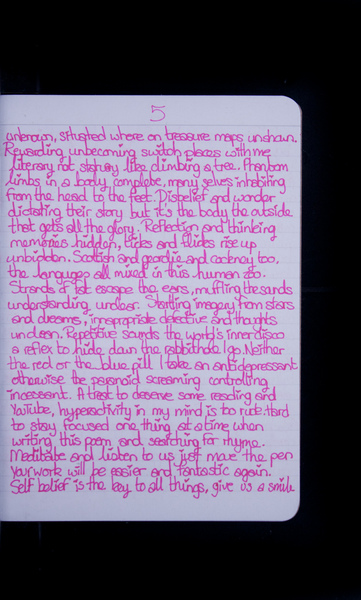 5
unknown, situated where on treasure maps unshown.
Rewarding unbecoming switch places with me
literary not sightly like climbing a tree. Phantom
limbs in a body complete, many selves inhabiting
from the head to the feet. Disbelief and wonder
dictating their story but it's the body the outside
that gets all the glory. Reflection and thinking
memories hidden, tides and flides rise up
unbidden. Scottish and geordie and cockney too,
the language all mixed in this human zoo.
Strands of fat escape the ears, muffling the sands
understanding unclear. Startling imagery from stars
and dreams, inappropriate defective and thoughts
unclean. Repetitive sounds the world's inner disco
a reflex to hide down the rabbithole I go. Neither
the red or the blue pill I take an antidepressant
otherwise the paranoid screaming controlling
incessant. A treat to deserve some reading and
YouTube, hyperactivity in my mind is too rude. Hard
to stay focused one thing at a time when
writing this poem and searching for rhyme.
Meditate and listen to us just move the pen
Your work will be easier and fantastic again.
Self belief is the key to all things, give us a smile